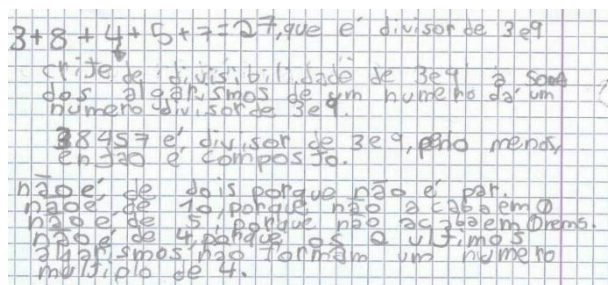 3+8+4+5+7=27, que é divisor de 3 e 9
crite de divisibilidade de 3 e 9 à soma
dos algarismos de um numero dá um
numero divisor de 3 e 9.
38457 é divisor de 3 e 9, pelo menos,
então é composto.
não é de dois porque não é par.
não é de 10, porque não acaba em 0
não é de 5, porque não acaba em 0 nem 5.
não é de 4, porque os 2 ultimos
algarismos não formam um numero
multiplo de 4.